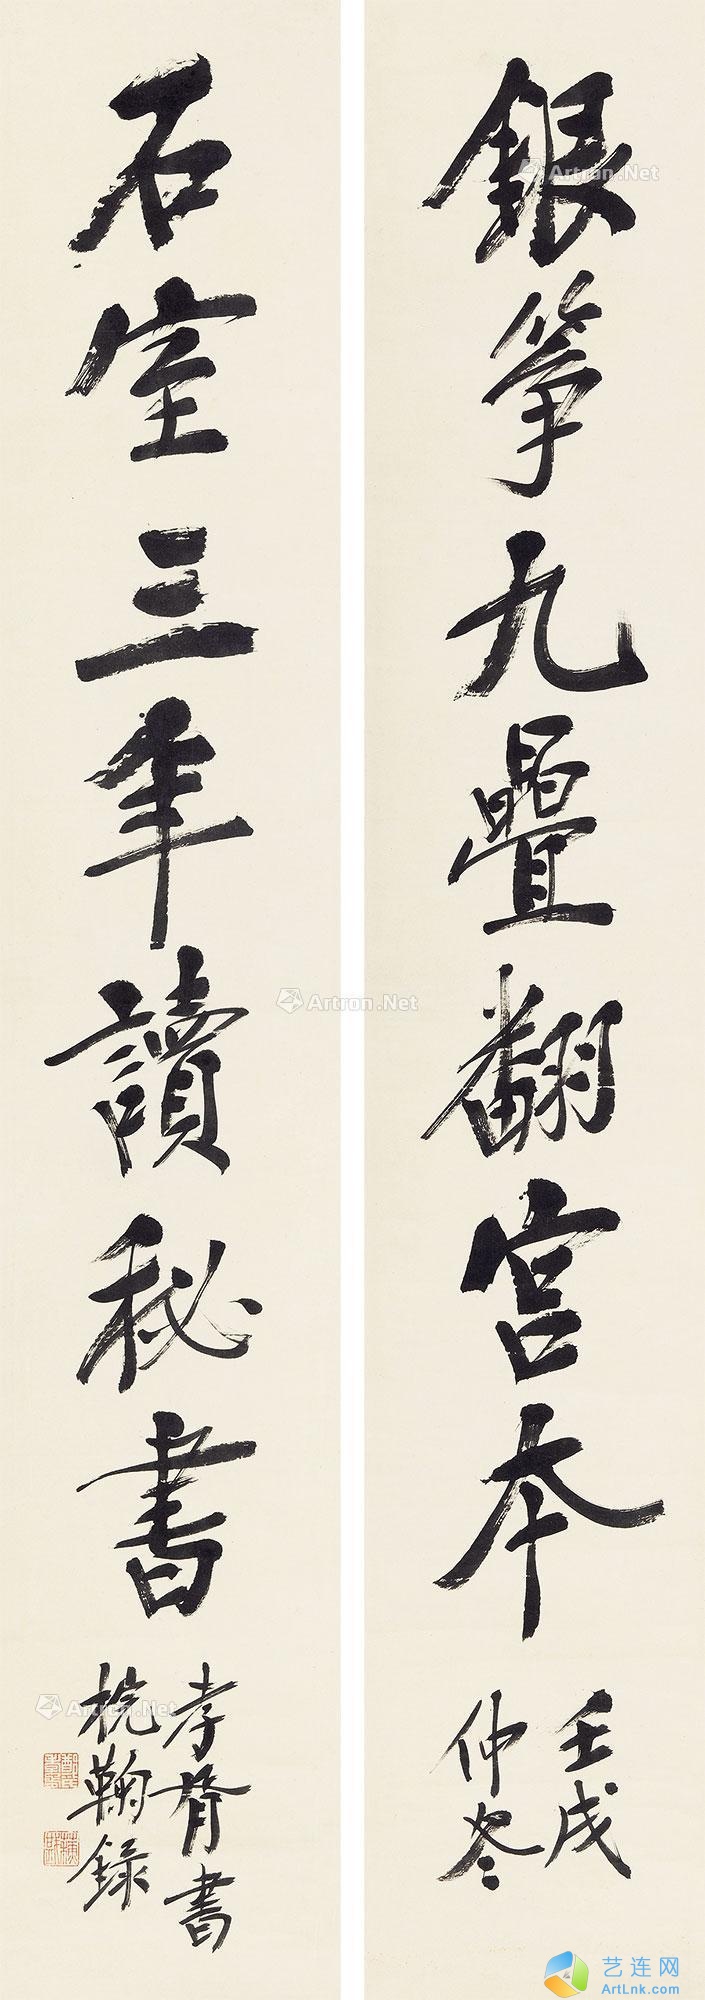 銀箏九疊翻宮本
壬戌
仲冬
石室三年讀秘書
孝胥書
杬鞠錄
Artron.Net
Artron.Net
Artron.Net
艺连网
ArtLnk.com